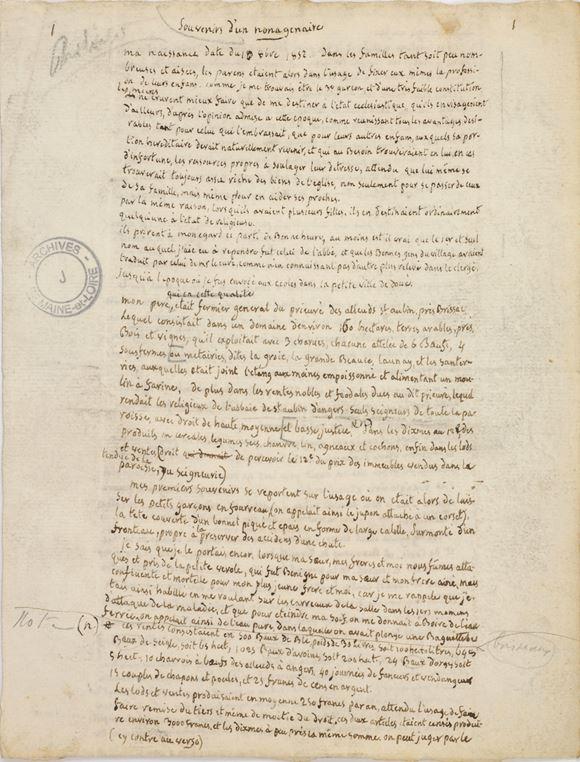 1 Souvenirs d'un nonagenaire 1
ma naissance date du 8bre 1752. Dans les familles tant soit peu nom-
breuses et aisées, les parens etaient alors dans l'usage de fixer eux mêmes la professi-
on de leurs enfans. comme je me trouvais être le garcon et d'une très faible constitution
les miens ne crurent mieux faire que de me destiner a l'etat ecclesiastique, qu'ils envisageaient
d'ailleurs, d'apres l'opinion admise a cette epoque, comme reunissant tous les avantages desi-
rables tant pour celui qui l'embrassait, que pour leurs autres enfans, auxquels sa por-
tion hereditaire devait naturellement revenir, et qui au besoin trouveraient en lui, en cas
d'infortune, les ressources propres à soulager leur detresse, attendu que lui même se
trouverait toujours assez riche des biens de l'eglise, non seulement pour se passer de ceux
de sa famille, mais même pour en aider ses proches.
par la même raison, lorsqu'ils avaient plusieurs filles, ils en destinaient ordinairement
quelqu'une à l'etat de religieuse.
ils prirent à mon egard ce parti de bonne heure, au moins est il vrai que le 1er et seul
nom auquel j'aie eu à repondre fut celui de l'abbé, et que les bonnes gens du village avaient
traduit par celui de mr le curé, comme n'en connaissant pas d'autre plus relevé dans le clergé,
jusqu'à l'epoque où je fus envoié aux ecoles dans la petite ville de Doué.
qui en cette qualité
mon pere, etait fermier general du prieuré des alleuds st aubin, près Brissac
Lequel consistait dans un domaine d'environ 160 hectares, terres arables, prés,
Bois et vignes, qu'il exploitait avec 3 charues, chacune attelée de 6 Bœufs, 4
sousfermes ou metairies, dites la groie, la grande Beauce, launay, et les
auxquelles etait joint l'etang aux moines empoissonné et alimentant un mou-
lin à farine, De plus dans les rentes nobles et feodales dues au dit prieuré, lequel
rendait les religieux de l'abbaie de st aubin d'angers seuls seigneurs de toute la pa-
roisse, avec droit de haute moyenne et basse justice, dans les dixmes au des
produits en cereales legumes secs, chanvre, lin, agneaux et cochons, enfin dans les lods
et ventes (droit de percevoir le 12e du prix des immeubles vendus dans la
tendue de la paroisse, ou seigneurie)
mes premiers souvenirs se reportent sur l'usage où on etait alors de lais-
ser les petits garçons en fourreau (on appelait ainsi le jupon attaché a un corset),
la tete couverte d'un bonnet piqué et epais en forme de large calotte, surmonté d'un
fronteau, propre à la preserver des accidens d'une chute.
Je sais que je le portais encor, lorsque ma sœur, mes freres et moi nous fumes atta-
qués et pris de la petite verole, qui fut benigne pour ma sœur et mon frere ainé, mais
confluente et mortelle pour mon plus jeune frere et moi, car je me rappelle que j'e-
tais ainsi habillé en me roulant sur les carreaux de la salle dans les 1ers momens
d'attaque de la maladie, et que pour eteindre ma soif on me donnait à Boire de l'eau
ferrée, on appelait ainsi de l'eau pure, dans laquelle on avait plongé une Baguette de
Nota (a) ces rentes consistaient en 300 Baux de Blé, poids de 30 livres, soit 100 hectolitres,
Baux de seigle, soit hect, 1025 Baux d'avoine, soit 205 hect, 24 Baux d'orge, soit
5 hect, 10 charrois à bœufs des alleuds à angers, 40 journées de faneurs et vendangeurs
15 couples de chapons et poules, et 25 francs de cens en argent.
Les lods et ventes produisaient en moyenne 250 francs par an, attendu l'usage de faire
faire remise du tiers et même de moitié du droit, ces deux articles etaient censés produi-
re environ 3000 francs, et les dixmes à peu près la même somme. on peut juger par le
(cy contre au verso)
ARCHIVES
J
MAINE-et-LOIRE